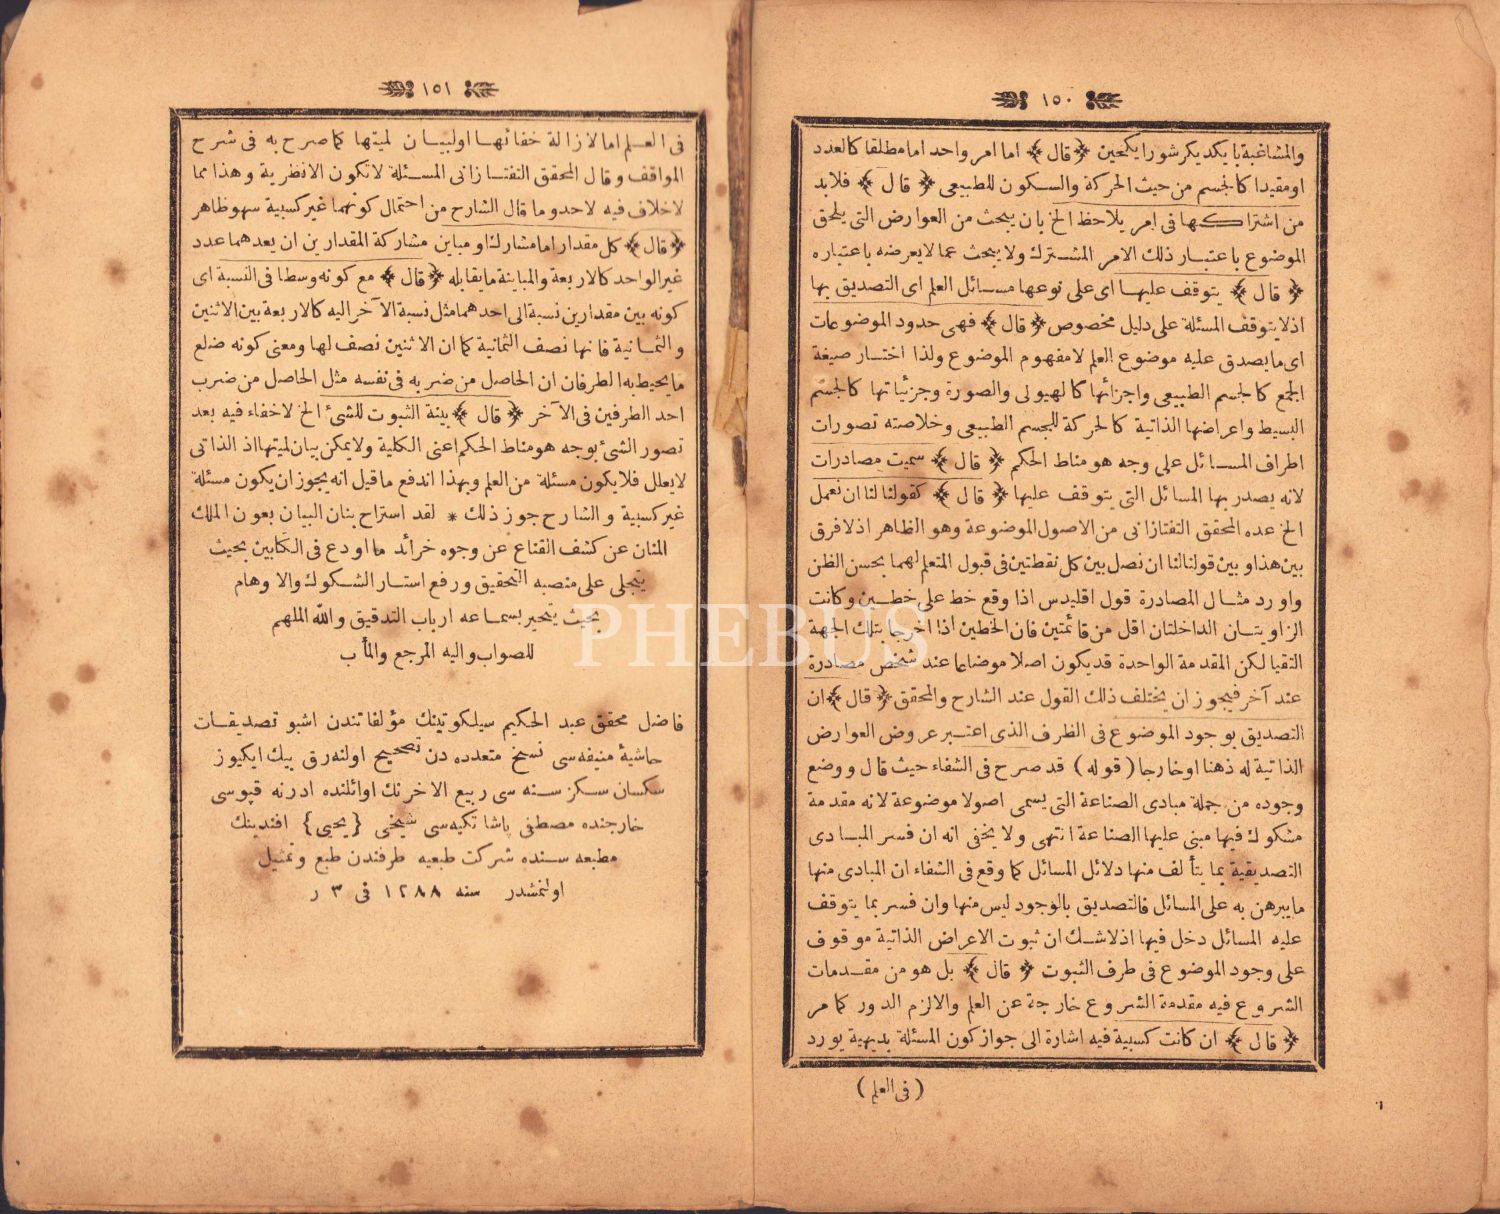 ١٥٠
والمشاغبة بایکدیکر شورایکمین ﴿ قال ﴾ اما امر واحد اما مطلقا كالعدد
او مقيدا كالجسم من حيث الحركة والسكون للطبيعى ﴿ قال ﴾ فلابد
من اشتراكها فى امر يلاحظ الخ بان يبحث من العوارض التى يلحق
الموضوع باعتبار ذلك الامر المشترك ولا يبحث عما لا يعرضه باعتباره
﴿ قال ﴾ يتوقف عليها اى على نوعها مسائل العلم اى التصديق بها
اذ لا يتوقف المسئلة على دليل مخصوص ﴿ قال ﴾ فهى حدود الموضوعات
اى ما يصدق عليه موضوع العلم لا مفهوم الموضوع ولذا اختار صيغة
الجمع كالجسم الطبيعى واجزائها كالهيولى والصورة وجزئياتها كالجسم
البسيط واعراضها الذاتية كالحركة للجسم الطبيعى وخلاصته تصورات
اطراف المسائل على وجه هو مناط الحكم ﴿ قال ﴾ سميت مصادرات
لانه يصدر بها المسائل التى يتوقف عليها ﴿ قال ﴾ كقولنا لنا ان نعمل
الخ عده المحقق التفتازانى من الاصول الموضوعة وهو الظاهر اذ لا فرق
بين هذا وبين قولنا لنا ان نصل بين كل نقطتين فى قبول المتعلم لهما بحسن الظن
واورد مثال المصادرة قول اقليدس اذا وقع خط على خطين وكانت
الزاويتان الداخلتان اقل من قائمتين فان الخطين اذا اخرجا بتلك الجهة
التقيا لكن المقدمة الواحدة قد يكون اصلا موضاعا عند شخص مصادرة
عند آخر فيجوز ان يختلف ذلك القول عند الشارح والمحقق ﴿ قال ﴾ ان
التصديق بوجود الموضوع فى الظرف الذى اعتبر عروض العوارض
الذاتية له ذهنا او خارجا ( قوله ) قد صرح فى الشفاء حيث قال ووضع
وجوده من جملة مبادى الصناعة التى يسمى اصولا موضوعة لانه مقدمة
مشكوك فيها مبنى عليها الصناعة انتهى ولا يخفى انه ان فسر المبادى
التصديقية بما يتألف منها دلائل المسائل كما وقع فى الشفاء ان المبادى منها
ما يبرهن به على المسائل فالتصديق بالوجود ليس منها وان فسر بما يتوقف
عليه المسائل دخل فيها اذ لاشك ان ثبوت الاعراض الذاتية موقوف
على وجود الموضوع فى طرف الثبوت ﴿ قال ﴾ بل هو من مقدمات
الشروع فيه مقدمة الشروع خارجة عن العلم والا لزم الدور كما مر
﴿ قال ﴾ ان كانت كسبية فيه اشارة الى جواز كون المسئلة بديهية يورد
( فى العلم )
١٥١
فى العلم اما لازالة خفائها او لبيان لميتها كما صرح به فى شرح
المواقف وقال المحقق التفتازانى المسئلة لا تكون الا نظرية وهذا مما
لا خلاف فيه لاحد وما قال الشارح من احتمال كونهما غير كسبية سهو ظاهر
﴿ قال ﴾ كل مقدار اما مشارك او مباين مشاركة المقدارين ان يعدهما عدد
غير الواحد كالاربعة والمباينة ما يقابله ﴿ قال ﴾ مع كونه وسطا فى النسبة اى
كونه بين مقدارين نسبة الى احدهما مثل نسبة الآخر اليه كالاربعة بين الاثنين
والثمانية فانها نصف الثمانية كما ان الاثنين نصف لها ومعنى كونه ضلع
ما يحيط به الطرفان ان الحاصل من ضربه فى نفسه مثل الحاصل من ضرب
احد الطرفين فى الآخر ﴿ قال ﴾ بينة الثبوت للشئ الخ لا خفاء فيه بعد
تصور الشئ بوجه هو مناط الحكم اعنى الكلية ولا يمكن بيان لميتها اذ الذاتى
لا يعلل فلا يكون مسئلة من العلم وبهذا اندفع ما قيل انه يجوز ان يكون مسئلة
غير كسبية والشارح جوز ذلك * لقد استراح بنان البيان بعون الملك
المنان عن كشف القناع عن وجوه خرائد ما اودع فى الكتابين بحيث
يتجلى على منصبه التحقيق ورفع استار الشكوك والاوهام
بحيث يتحير بسماعه ارباب التدقيق والله الملهم
للصواب واليه المرجع والمأب
فاضل محقق عبد الحكيم سيلكوتينك مؤلفاتندن اشبو تصديقات
حاشيۀ منيفه سى نسخ متعدده دن تصحيح اولنه رق بيك ايكيوز
سكسان سكز سنه سى ربيع الاخرنك اوائلنده ادرنه قپوسى
خارجنده مصطفى پاشا تكيه سى شيخى {يحيى} افندينك
مطبعه سنده شركت طبعيه طرفندن طبع وتمثيل
اولنمشدر سنه ١٢٨٨ فى ٣ ر
PHEBUS